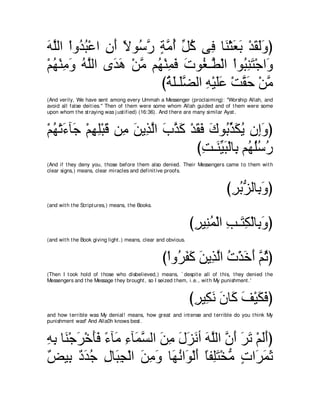 وَلَقَدْ بَعَثْنَا فِى كُلِّ أُمَّةٍ رَّسُولاً أَنِ اعْبُدُواْ اللَّهَ
وَاجْتَنِبُواْ الْطَّـغُوتَ فَمِنْهُم مَّنْ هَدَى اللَّهُ وَمِنْهُمْ
مَّنْ حَقَّتْ عَلَيْهِ الضَّلَـلَةُ)
(And verily, We have sent among every Ummah a Messenger (proclaiming): "Worship Allah, and
avoid all false deities." Then of them were some whom Allah guided and of them were some
upon whom the straying was justified) (16:36). And there are many similar Ayat.
(وَإِن يُكَذِّبُوكَ فَقَدْ كَذَّبَ الَّذِينَ مِن قَبْلِهِمْ جَآءَتْهُمْ
رُسُلُهُم بِالْبَيِّنَـتِ)
(And if they deny you, those before them also denied. Their Messengers came to them with
clear signs,) means, clear miracles and definitive proofs.
(وَبِالزُّبُرِ)
(and with the Scriptures,) means, the Books.
(وَبِالْكِتَـبِ الْمُنِيرِ)
(and with the Book giving light.) means, clear and obvious.
(ثُمَّ أَخَذْتُ الَّذِينَ كَفَرُواْ)
(Then I took hold of those who disbelieved,) means, `despite all of this, they denied the
Messengers and the Message they brought, so I seized them, i.e., with My punishment.'
(فَكَيْفَ كَانَ نَكِيرِ)
and how terrible was My denial! means, how great and intense and terrible do you think My
punishment was!' And Allah knows best.
(أَلَمْ تَرَ أَنَّ اللَّهَ أَنزَلَ مِنَ السَّمَآءِ مَآءً فَأَخْرَجْنَا بِهِ
ثَمَرَتٍ مُّخْتَلِفاً أَلْوَانُهَا وَمِنَ الْجِبَالِ جُدَدٌ بِيضٌ